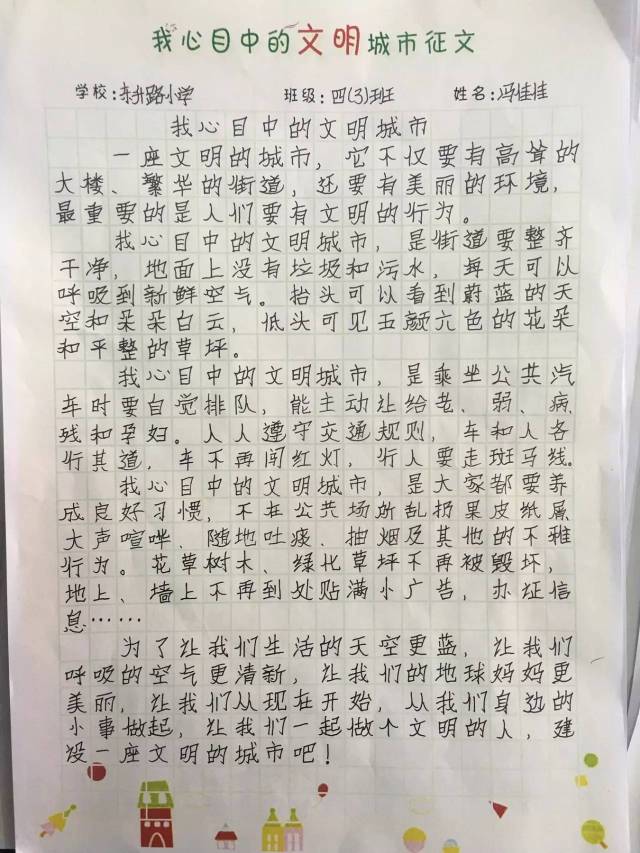 我心目中的文明城市征文
学校:东升路小学 班级:四(3)班 姓名:冯佳佳
我心目中的文明城市
一座文明的城市，它不仅要有高耸的
大楼、繁华的街道，还要有美丽的环境，
最重要的是人们要有文明的行为。
我心目中的文明城市，是街道要整齐
干净，地面上没有垃圾和污水，每天可以
呼吸到新鲜空气。抬头可以看到蔚蓝的天
空和朵朵白云，低头可见五颜六色的花朵
和平整的草坪。
我心目中的文明城市，是乘坐公共汽
车时要自觉排队，能主动让给老、弱、病、
残和孕妇。人人遵守交通规则，车和人各
行其道，车不再闯红灯，行人要走斑马线。
我心目中的文明城市，是大家都要养
成良好习惯，不在公共场所乱扔果皮纸屑、
大声喧哗、随地吐痰、抽烟及其他的不雅
行为。花草树木、绿化草坪不再被毁坏，
地上、墙上不再到处贴满小广告，办证信
息……
为了让我们生活的天空更蓝，让我们
呼吸的空气更清新，让我们的地球妈妈更
美丽，让我们从现在开始，从我们身边的
小事做起，让我们一起做个文明的人，建
设一座文明的城市吧！